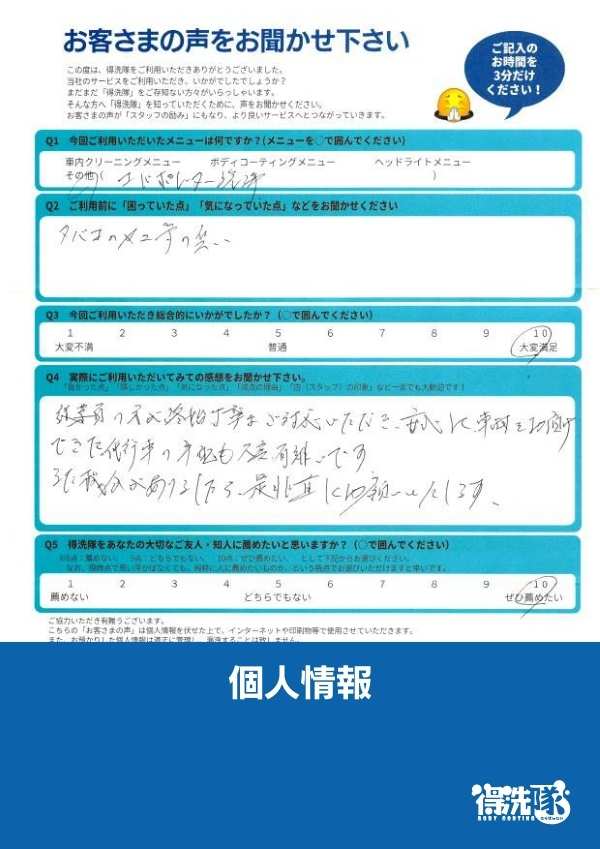 お客さまの声をお聞かせ下さい
ご記入の
お時間を
3分だけ
ください！
この度は、得洗隊をご利用いただきありがとうございました。
当社のサービスをご利用いただき、いかがでしたでしょうか？
まだまだ「得洗隊」をご存知ない方々がいらっしゃいます。
そんな方へ「得洗隊」を知っていただくために、声をお聞かせください。
お客さまの声が「スタッフの励み」にもなり、より良いサービスへとつながっていきます。
Q1 今回ご利用いただいたメニューは何ですか？(メニューを○で囲んでください)
車内クリーニングメニュー ボディコーティングメニュー ヘッドライトメニュー
その他( エバポレーター洗浄 )
Q2 ご利用前に「困っていた点」「気になっていた点」などをお聞かせください
タバコのヤニ等の臭い
Q3 今回ご利用いただき総合的にいかがでしたか？（○で囲んでください）
1 2 3 4 5 6 7 8 9 10
大変不満 普通 大変満足
Q4 実際にご利用いただいてみての感想をお聞かせ下さい。
「良かった点」「嬉しかった点」「気になった点」「満点の理由」「店（スタッフ）の印象」など一言でも大歓迎です！
従業員の方が終始丁寧なご対応いただき、安心して車両をお預け
できた代行車の手配も大変有難いです
また機会がありましたら、是非直にお願いいたします、
Q5 得洗隊をあなたの大切なご友人・知人に薦めたいと思いますか？（○で囲んでください）
1 2 3 4 5 6 7 8 9 10
薦めない どちらでもない ぜひ薦めたい
ご協力いただき有難うございます。
こちらの「お客さまの声」は個人情報を伏せた上で、インターネットや印刷物等で使用させていただきます。
また、お預かりした個人情報は適正に管理し、漏洩することは致しません。
個人情報
得洗隊
BODY COATING